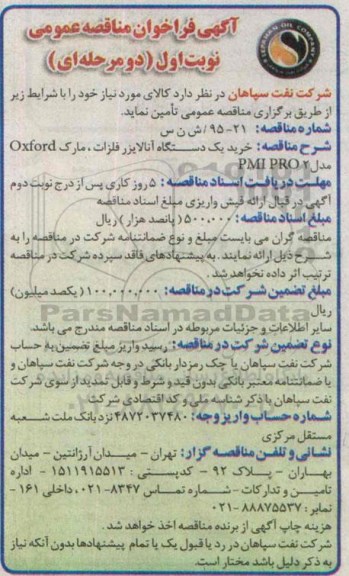 آگهی فراخوان مناقصه عمومی
نوبت اول (دو مرحله ای)
SEPAHAN OIL COMPANY
شرکت نفت سپاهان در نظر دارد کالای مورد نیاز خود را با شرایط زیر
از طریق برگزاری مناقصه عمومی تأمین نماید.
شماره مناقصه: ۲۱- ۹۵/ش ن س
شرح مناقصه: خرید یک دستگاه آنالایزر فلزات ، مارک Oxford
مدل PMI PRO ۲
مهلت دریافت اسناد مناقصه: ۵ روز کاری پس از درج نوبت دوم
آگهی در قبال ارائه فیش واریزی مبلغ اسناد مناقصه
مبلغ اسناد مناقصه: ۵۰۰۰۰۰ (پانصد هزار) ریال
مناقصه گران می بایست مبلغ و نوع ضمانتنامه شرکت در مناقصه را به
شرح ذیل ارائه نمایند. به پیشنهادهای فاقد سپرده شرکت در مناقصه
ترتیب اثر داده نخواهد شد.
مبلغ تضمین شرکت در مناقصه: ۱۰۰,۰۰۰,۰۰۰ (یکصد میلیون)
ریال
ParsNamadData
سایر اطلاعات و جزئیات مربوطه در اسناد مناقصه مندرج می باشد.
نوع تضمین شرکت در مناقصه: رسید واریز مبلغ تضمین به حساب
شرکت نفت سپاهان یا چک رمزدار بانکی در وجه شرکت نفت سپاهان و
یا ضمانتنامه معتبر بانکی بدون قید و شرط و قابل تمدید از سوی شرکت
نفت سپاهان با ذکر شناسه ملی و کد اقتصادی شرکت
شماره حساب واریز وجه: ۴۸۷۲۰۳۷۴۸۰ نزد بانک ملت شعبه
مستقل مرکزی
نشانی و تلفن مناقصه گزار: تهران - میدان آرژانتین - میدان
بهاران - پلاک ۹۲ - کدپستی: ۱۵۱۱۹۱۵۵۱۳ - اداره
تامین و تدارکات - شماره تماس ۸۳۴۷-۰۲۱، داخلی ۱۶۱ -
نمابر: ۸۸۸۷۵۵۳۷-۰۲۱
هزینه چاپ آگهی از برنده مناقصه اخذ خواهد شد.
شرکت نفت سپاهان در رد یا قبول یک یا تمام پیشنهادها بدون آنکه نیاز
به ذکر دلیل باشد مختار است.